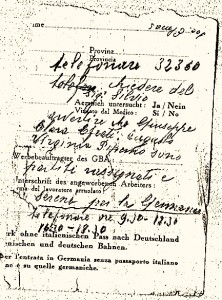 me
Provinz
Provincia
telefonare 32360
chiedere del
Sig.
Aerztlich untersucht: Ja / Nein
Visitato dal Medico: Si / No
avvertire che Giuseppe
Efrati
Virginia Piperno sono
Werbebeauftragter des GBA.
partiti rassegnati e
nterschrift des angeworbenen Arbeiters:
irma del lavoratore
sereni per la Germania
telefonare ore 9.30-12.30
16.30-18.30
rk ohne italienischen Pass nach Deutschland
enischen und deutschen Bahnen.
per l'entrata in Germania senza passaporto italiano
ne e su quelle germaniche.